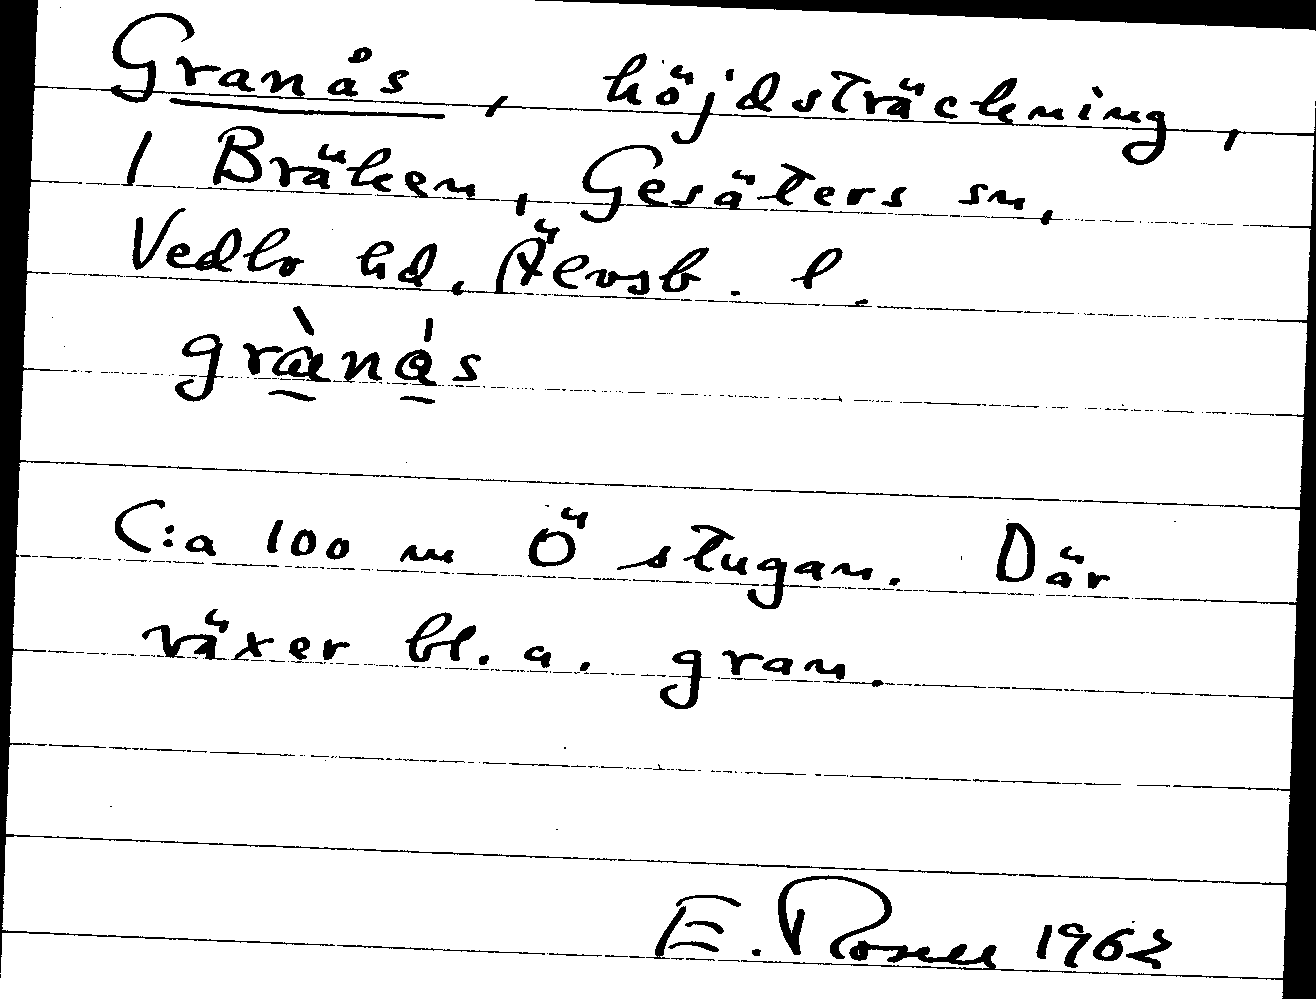 Granås, höjdsträckning,
1 Bräcken, Gesäters sn,
Vedbo hd. Älvsb. l.
græ̀nås
C:a 100 m Ö stugan. Där
växer bl. a. gran.
E. Rosell 1962